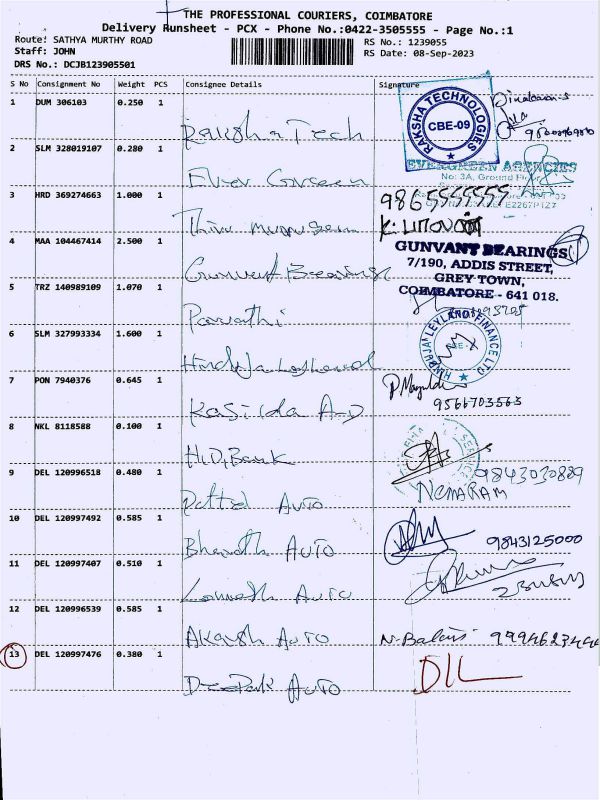 THE PROFESSIONAL COURIERS, COIMBATORE
Delivery Runsheet - PCX - Phone No.:0422-3505555 - Page No.:1
Route: SATHYA MURTHY ROAD
RS No.: 1239055
Staff: JOHN
RS Date: 08-Sep-2023
DRS No.: DCJB123905501
S No Consignment No Weight PCS Consignee Details Signature
1 DUM 306103 0.250 1 Raksha Tech
RAKSHA TECHNOLOGIES
CBE-09
2 SLM 328019107 0.280 1 Ever Green
EVERGREEN AGENCIES
No: 3A, Ground Floor
3 HRD 369274663 1.000 1 Thiru Murugan
9865555555
4 MAA 104467414 2.500 1 Gunvant Bearings
GUNVANT BEARINGS
7/190, ADDIS STREET,
GREY TOWN,
COIMBATORE - 641 018.
5 TRZ 140989109 1.070 1 Parvathi
6 SLM 327993334 1.600 1 Hinduja Leyland
HINDUJA LEYLAND FINANCE LTD
7 PON 7940376 0.645 1
9566703563
8 NKL 8118588 0.100 1 Bank
9843030889
NEMARAM
9 DEL 120996518 0.480 1 Auto
10 DEL 120997492 0.585 1 Bharath Auto
9843125000
11 DEL 120997407 0.510 1 Auto
12 DEL 120996539 0.585 1 Akash Auto
13 DEL 120997476 0.380 1 Deepak Auto
DIL